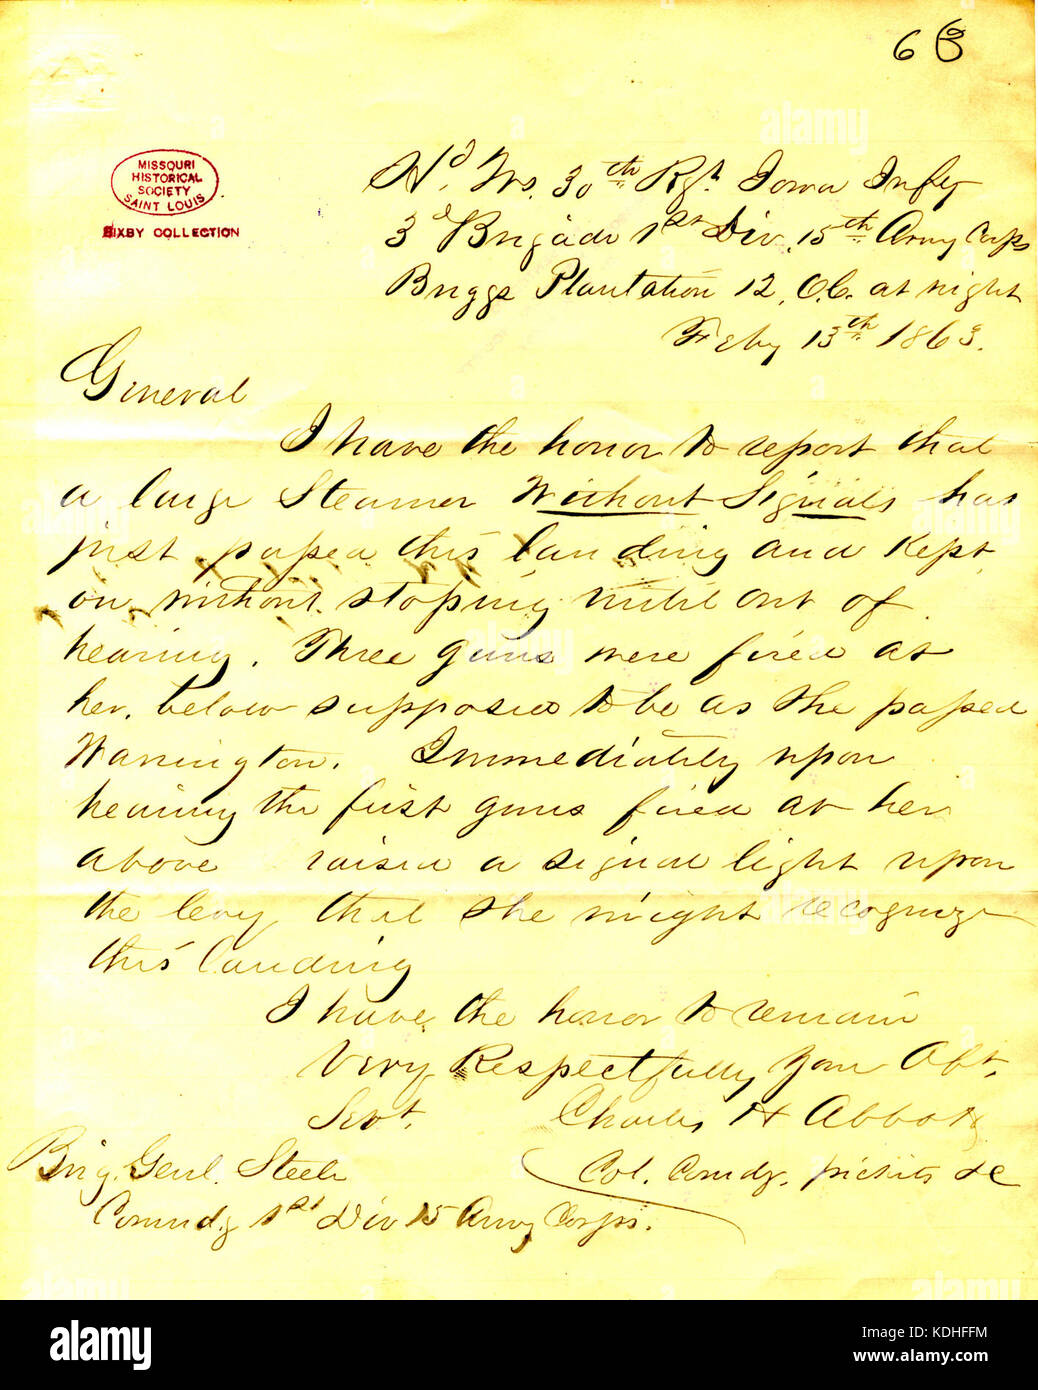 6 6
3
MISSOURI
HISTORICAL
SOCIETY
SAINT LOUIS
BIXBY COLLECTION
Hd. Qrs. 30th Rgt. Iowa Infty
3d Brigade 1st Div. 15th Army Corps
Briggs Plantation 12, O.C. at night
Feby 13th 1863.
General
I have the honor to report that
a large Steamer Without Signals has
just passed this landing and kept
on without stoping until out of
hearing. Three guns were fired at
her, below supposed to be as she passed
Warrington. Immediately upon
hearing the first guns fired at her
above raised a signal light upon
the levy that she might recognize
this landing
I have the honor to remain
Very Respectfully Your Obt.
Servt. Charles H Abbott
Brig. Genl. Steele Col. Comdg. pickets &c
Commdg 1st Div 15 Army Corps.
alamy
Image ID: KDHFFM
www.alamy.com